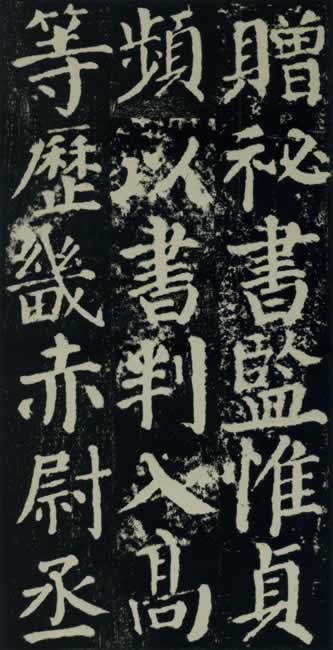 贈祕書監惟貞
頻以書判入高
等歷畿赤尉丞